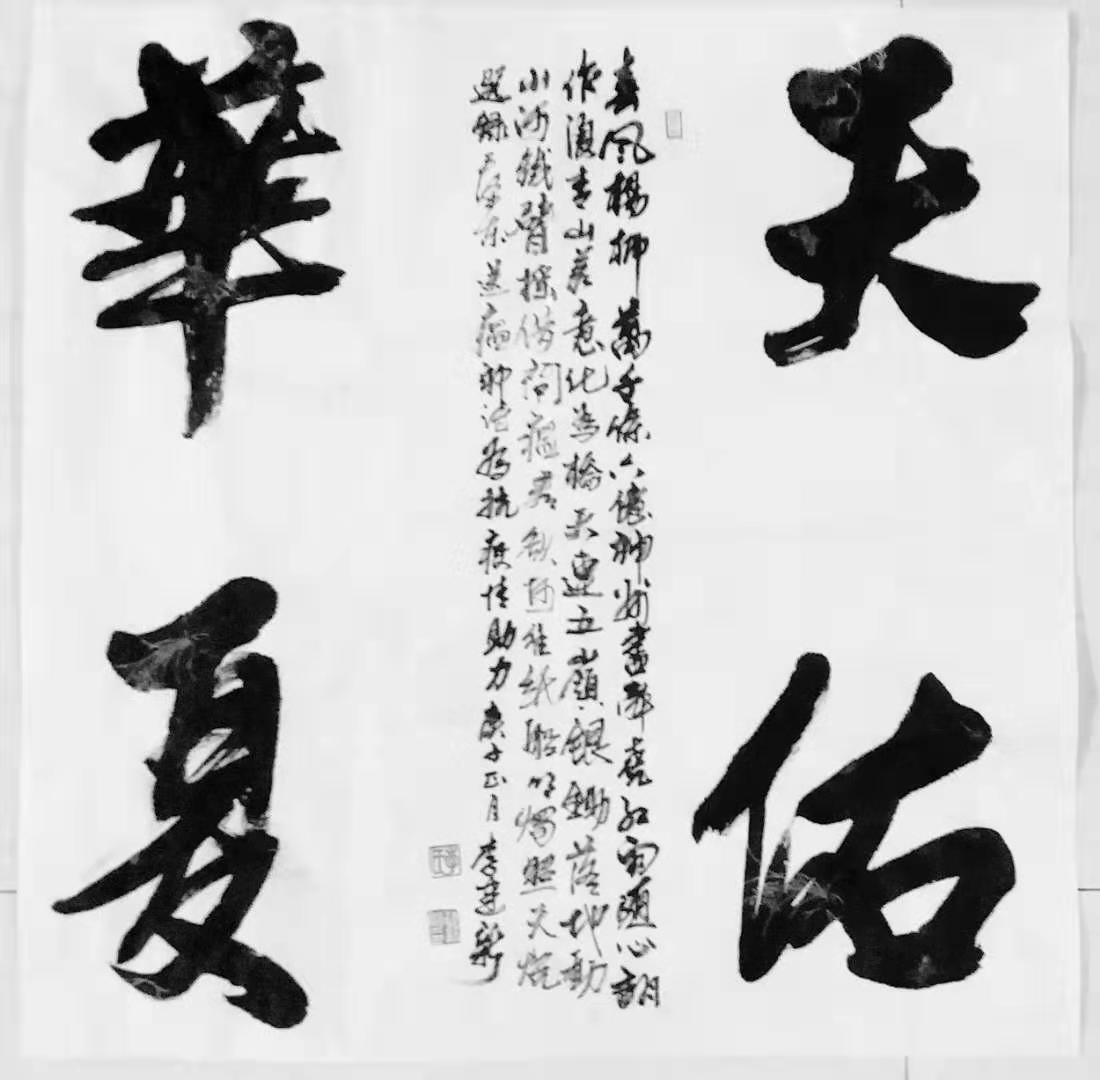 天佑
春風楊柳萬千條六億神州盡舜堯紅雨隨心翻
作浪青山着意化為橋天連五嶺銀鋤落地動
河鐵臂搖借問瘟君欲何往紙船明燭照天燒
選錄毛澤东送瘟神詩為抗疫情助力庚子正月李建新
華夏